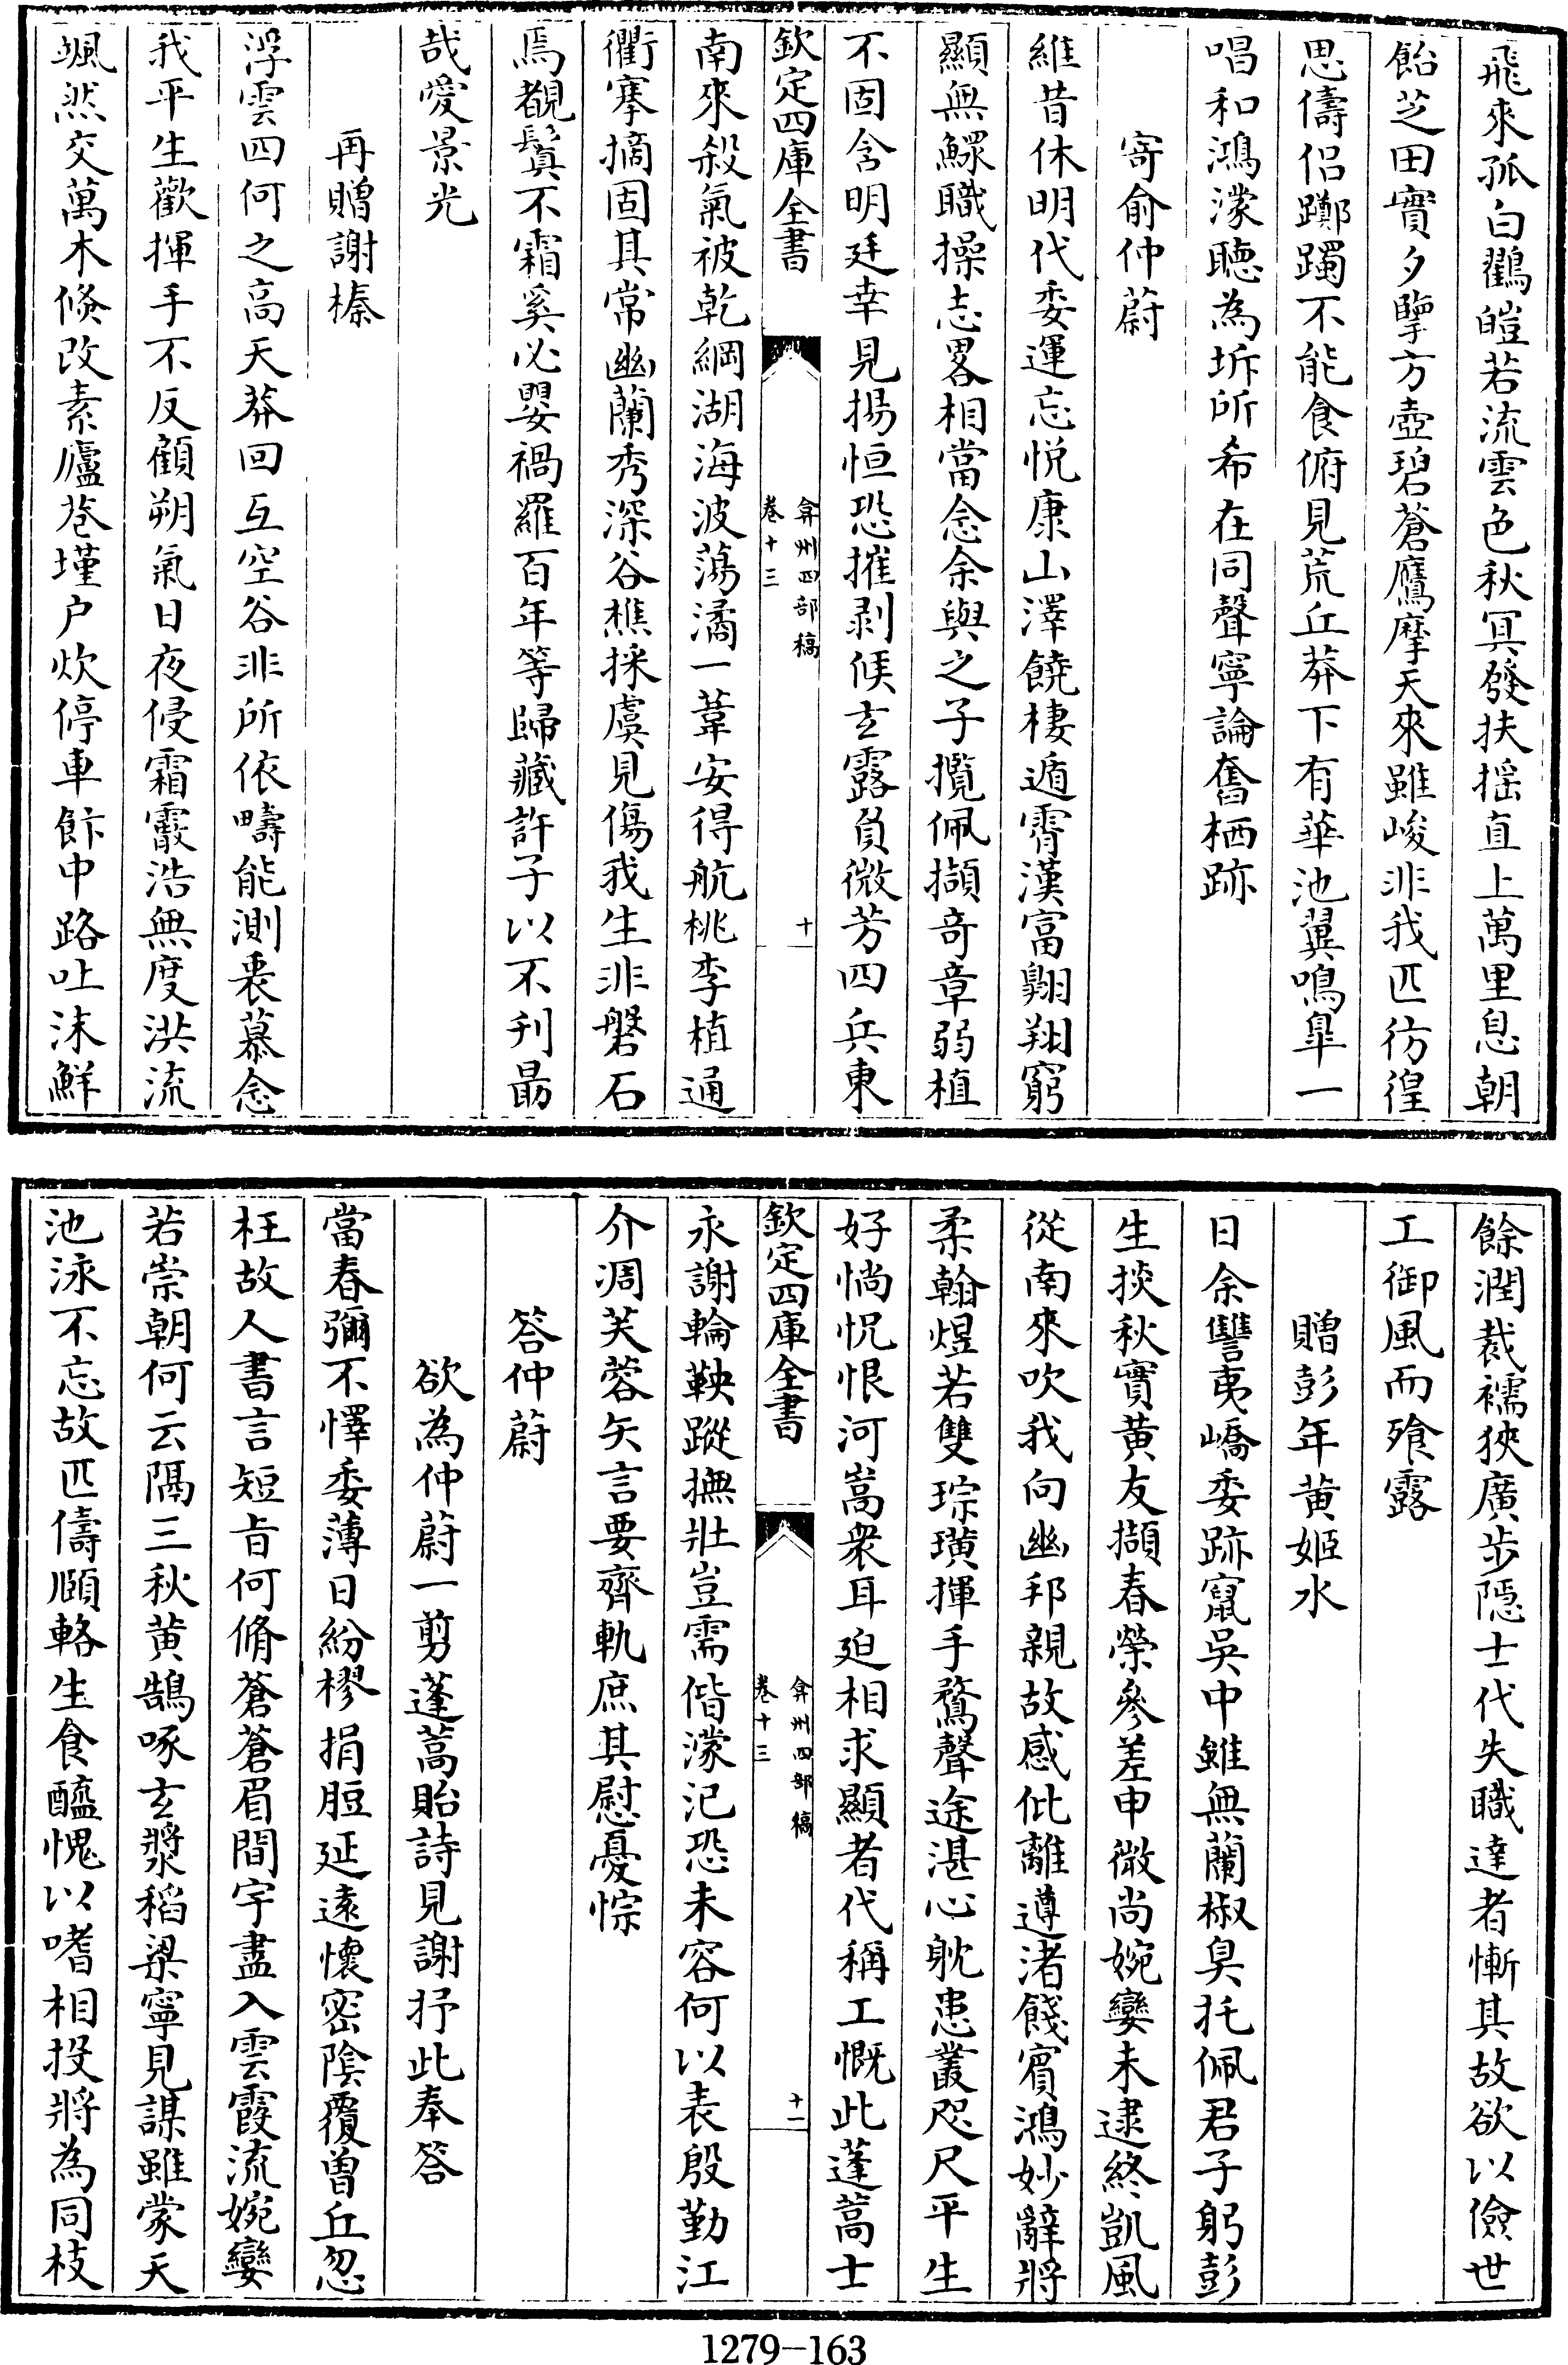 飛來孤白鸖皚若流雲色秋冥發扶揺直上萬里息朝
飴芝田實夕擥方壺碧蒼鷹摩天來雖峻非我匹彷徨
思儔侣躑躅不能食俯見荒丘莽下有華池翼鳴臯一
唱和鴻濛聽為坼所希在同聲寧論奮栖跡
寄俞仲蔚
維昔休明代委運忘悦康山澤饒棲遁霄漢富翺翔窮
顯無鰥職操志畧相當念余與之子攬佩擷奇章弱植
不固含明廷幸見揚恒恐摧剥候玄露負微芳四兵東
欽定四庫全書
弇州四部稿
卷十三
十
南來殺氣被乾綱湖海波蕩潏一葦安得航桃李植通
衢搴摘固其常幽蘭秀深谷樵採虞見傷我生非磐石
焉覩鬢不霜奚必嬰禍羅百年等歸藏許子以不刋勗
哉愛景光
再贈謝榛
浮雲四何之高天莽回互空谷非所依疇能測裵慕念
我平生歡揮手不反顧朔氣日夜侵霜霰浩無度洪流
颯然交萬木倏改素廬巷墐户炊停車飰中路吐沫鮮
餘潤裁襦狹廣步隱士代失職達者慚其故欲以儉世
工御風而飱露
贈彭年黄姬水
日余讐夷嶠委跡竄吳中雖無蘭椒臭托佩君子躬彭
生掞秋實黄友擷春榮參差申微尚婉孌未逮終凱風
從南來吹我向幽邦親故感仳離遵渚餞賓鴻妙辭將
柔翰煜若雙琮璜揮手騖聲途湛心躭患叢咫尺平生
好惝怳恨河嵩衆耳廹相求顯者代稱工慨此蓬蒿士
欽定四庫全書
弇州四部稿
卷十三
十一
永謝輪鞅蹤撫壯豈需偕濛汜恐未容何以表殷勤江
介凋芙蓉矢言要齊軌庶其慰憂悰
答仲蔚
欲為仲蔚一剪蓬蒿貽詩見謝抒此奉答
當春彌不懌委薄日紛樛捐脰延遠懷密陰覆曽丘忽
枉故人書言短旨何脩蒼蒼眉間宇盡入雲霞流婉孌
若崇朝何云隔三秋黄鵠啄玄漿稻粱寧見謀雖蒙天
池泳不忘故匹儔願輅生食醯愧以嗜相投將為同枝
1279-163